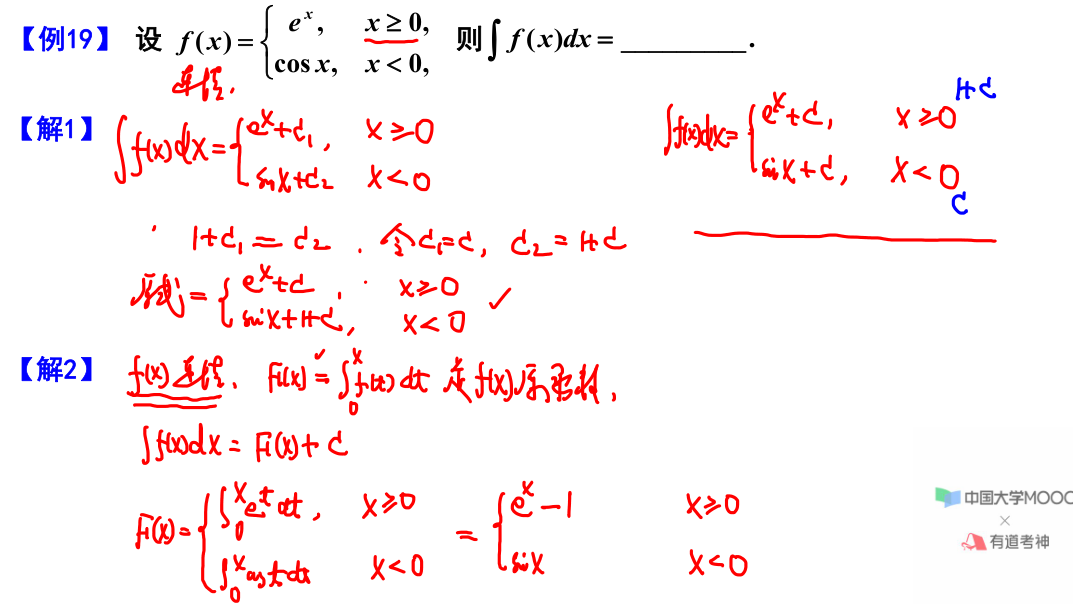 【例19】 设 f(x) = { e^x, x ≥ 0, cos x, x < 0, 则 ∫ f(x)dx = _________.
连续.
【解1】 ∫f(x)dx = { e^x+C₁, x≥0
sinx+C₂ x<0
∫f(x)dx = { e^x+C, x≥0 1+C
sinx+C, x<0
C
1+C₁ = C₂ . 令C₁=C, C₂ = 1+C
原式 = { e^x+C, x≥0
sinx+1+C, x<0 ✓
【解2】 f(x)连续. F(x) = ∫₀^x f(t)dt 是f(x)原函数,
∫f(x)dx = F(x)+C
F(x) = { ∫₀^x e^t dt, x≥0 = { e^x-1 x≥0
∫₀^x cost dt x<0 sinx x<0
中国大学MOOC
×
有道考神